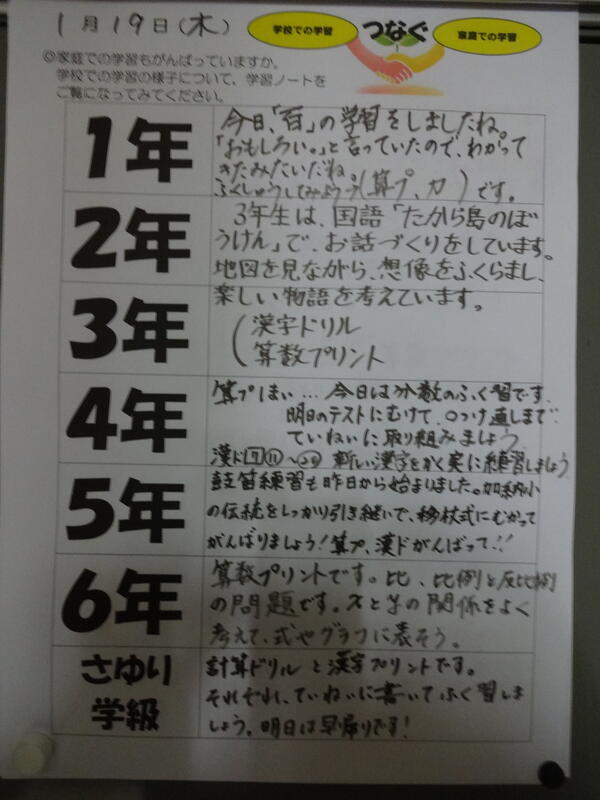 1月19日(木)
学校での学習
つなぐ
家庭での学習
◎家庭での学習もがんばっていますか。
学校での学習の様子について、学習ノートを
ご覧になってみてください。
1年
今日、「百」の学習をしましたね。
「おもしろい。」と言っていたので、わかって
きたみたいだね。
ふくしゅうしてみよう(算プ、カ)です。
2年
3年生は、国語「たから島のぼ
うけん」で、お話づくりをしています。
地図を見ながら、想像をふくらまし、
3年
楽しい物語を考えています。
漢字ドリル
算数プリント
4年
算プ1まい…今日は分数のふく習です。
明日のテストにむけて、○つけ直しまで
ていねいに取り組みましょう。
漢ド 新しい漢字をかく実に練習しましょう
5年
鼓笛練習も昨日から始まりました。加納小
の伝統をしっかり引き継いで、移杖式にむかって
がんばりましょう!算プ、漢ドがんばって!!
6年
算数プリントです。比、比例と反比例
の問題です。xとyの関係をよく
考えて、式やグラフに表そう。
さゆり
学級
計算ドリルと漢字プリントです。
それぞれ、ていねいに書いてふく習しま
しょう。明日は早帰りです!